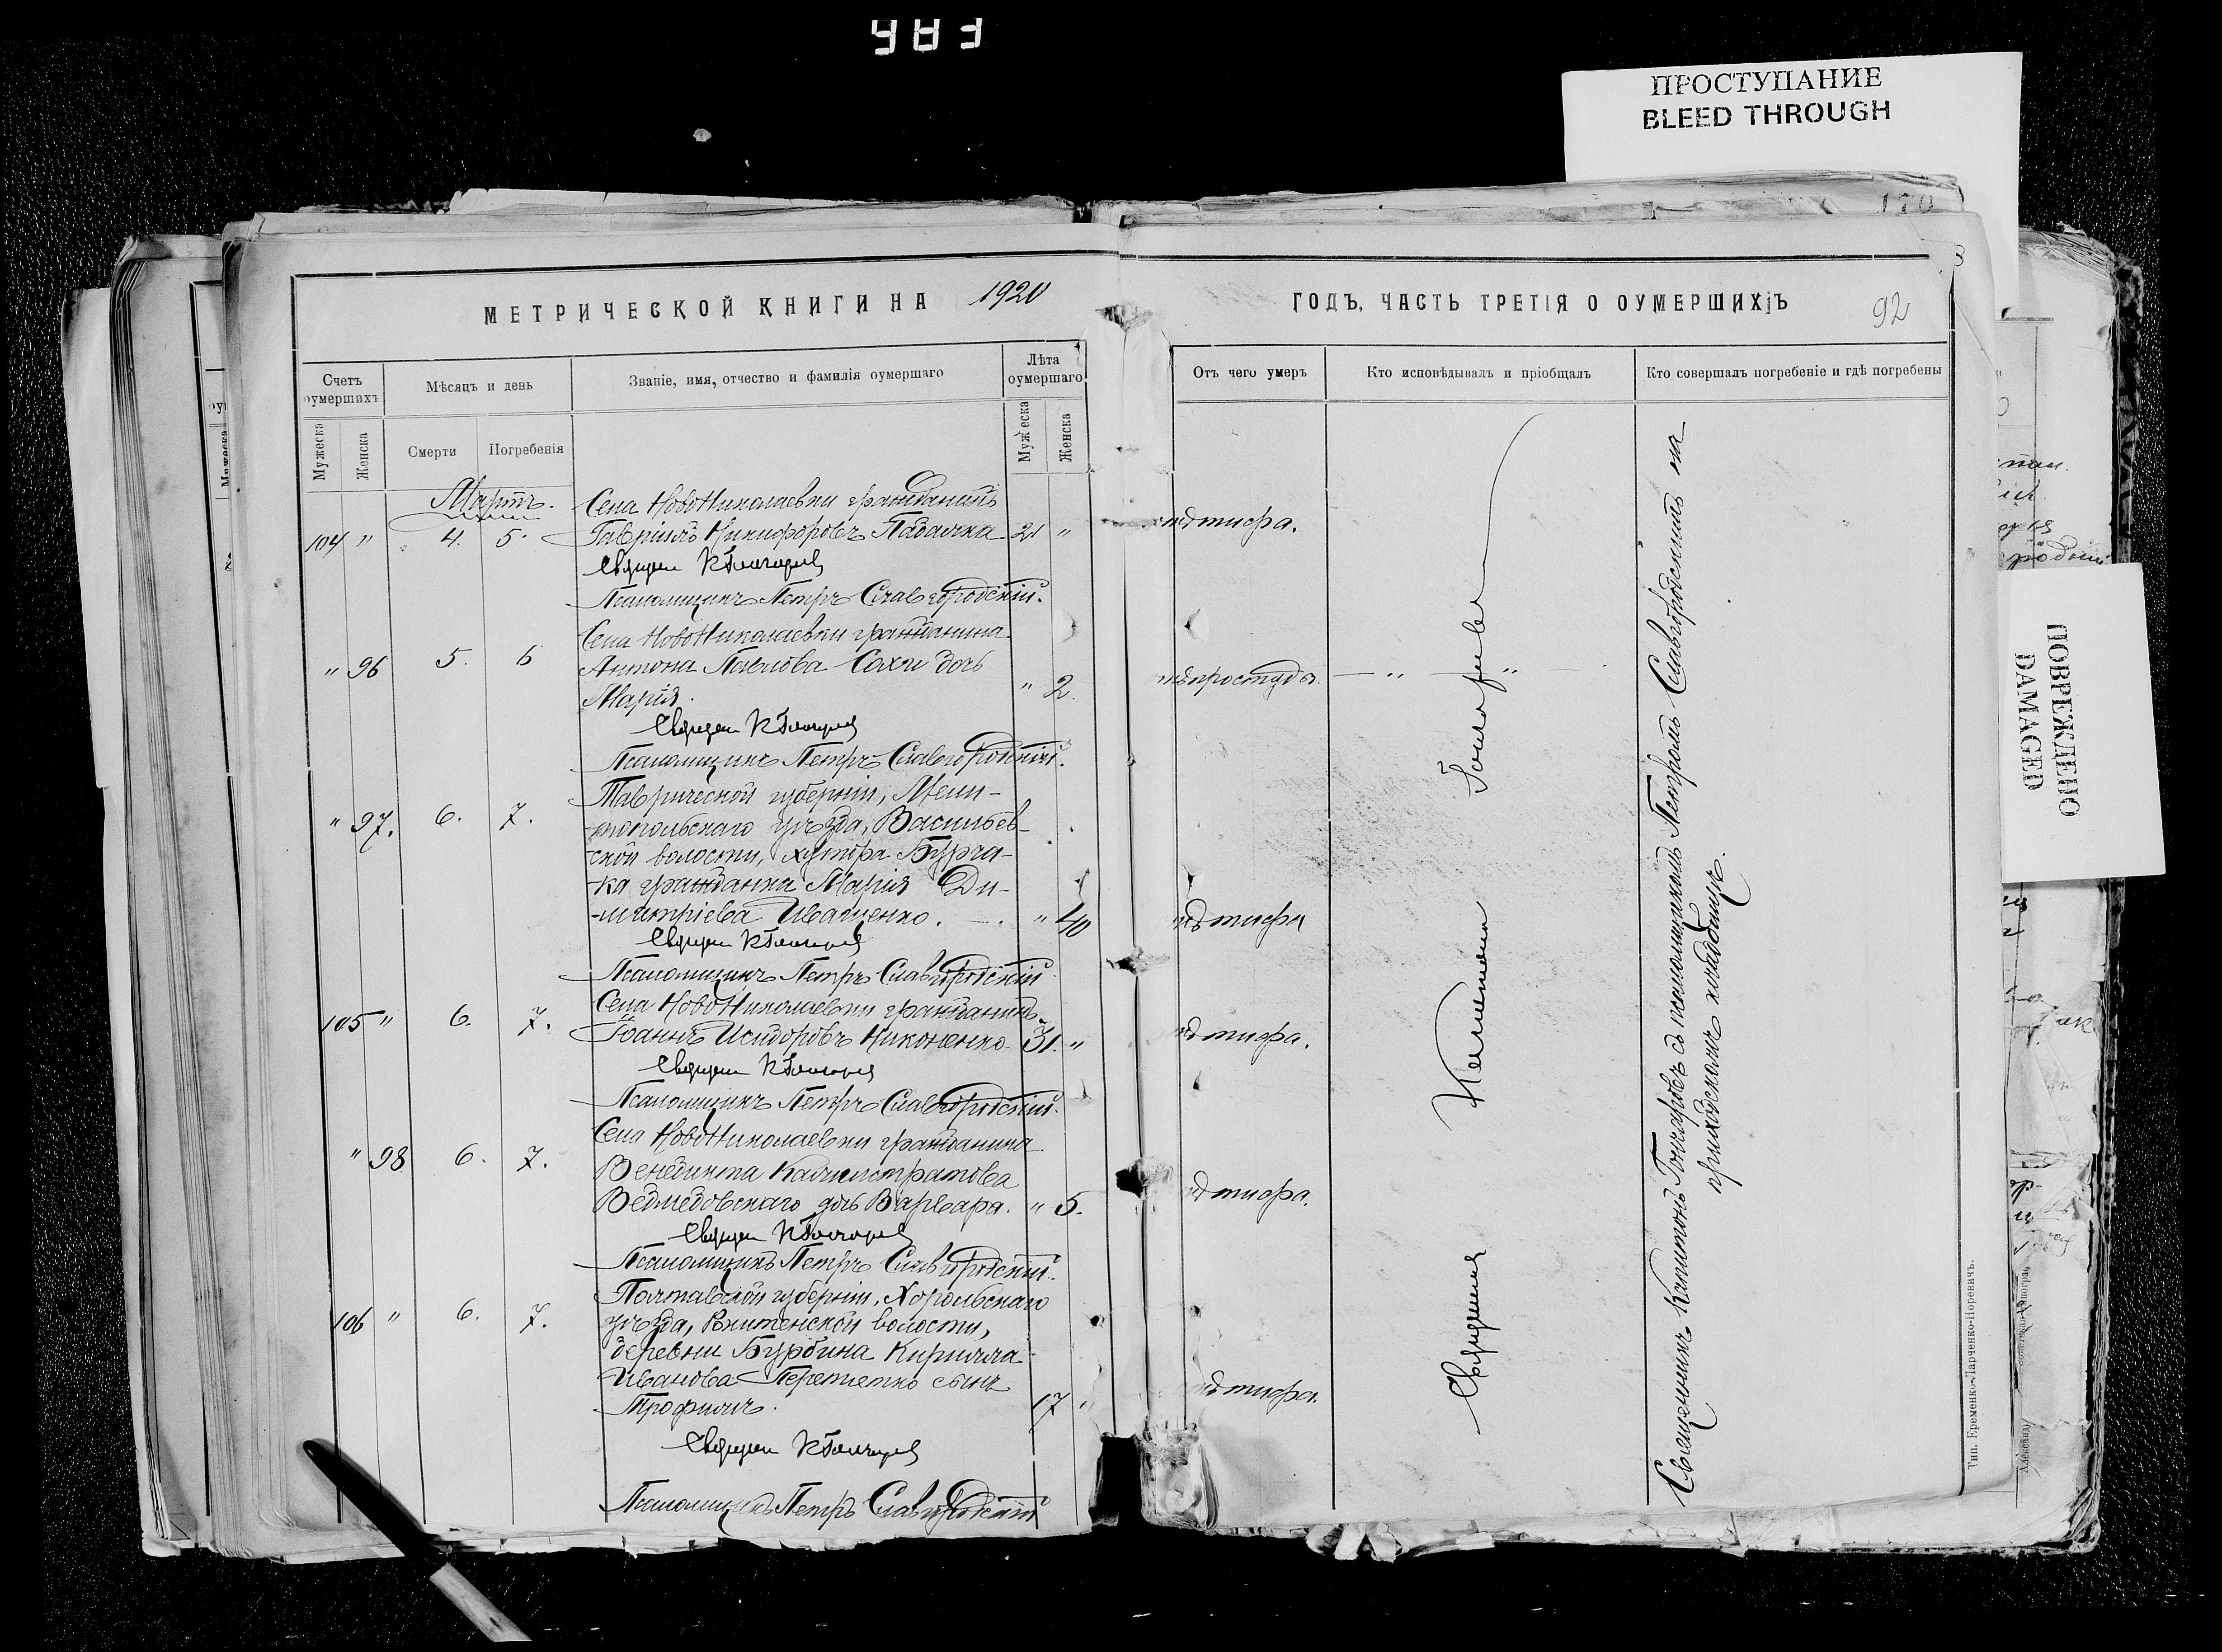 ПРОСТУПАНИЕ
BLEED THROUGH
170
МЕТРИЧЕСКОЙ КНИГИ НА 1920
Счетъ оумершихъ
Мѣсяцъ и день
Званіе, имя, отчество и фамилія оумершаго
Лѣта оумершаго
Мужеска
Женска
Смерти
Погребенія
Мужеска
Женска
Мартъ.
Села НовоНиколаевки гражданинъ
104 " 4. 5. Гавріилъ Никифоровъ Падалка 21 "
Священ К Гончаровъ
Псаломщикъ Петръ Славгородскій.
Села НовоНиколаевки гражданина
" 96 5. 6 Антона Павлова Сахи дочь
Марія. " 2.
Священ К Гончаровъ
Псаломщикъ Петръ Славгородскій.
Таврической губерніи, Мели-
" 97. 6. 7. топольскаго уѣзда, Васильев-
ской волости, хутора Бурча-
ка гражданка Марія Ди-
митріева Иващенко. " 40
Священ К Гончаровъ
Псаломщикъ Петръ Славгородскій
Села НовоНиколаевки гражданинъ
105 " 6. 7. Іоаннъ Исидоровъ Никоненко 31. "
Священ К Гончаровъ
Псаломщикъ Петръ Славгородскій.
Села НовоНиколаевки гражданина
" 98 6. 7. Венедикта Каллистратова
Ведмедовскаго дочь Варвара. " 5.
Священ К Гончаровъ
Псаломщикъ Петръ Славгородскій.
Полтавской губерніи, Хорольскаго
106 " 6. 7. уѣзда, волости,
деревни Бурбина Кирилла
Иванова сынъ
Трофимъ. 17 "
Священ К Гончаровъ
Псаломщикъ Петръ Славгородскій
ГОДЪ, ЧАСТЬ ТРЕТІЯ О ОУМЕРШИХЪ
92
Отъ чего умеръ
Кто исповѣдывалъ и пріобщалъ
Кто совершалъ погребеніе и гдѣ погребены
тифа.
простуды. — " — "
тифа
тифа.
тифа.
тифа.
Священникъ Капитонъ Гончаровъ
Священникъ Капитонъ Гончаровъ съ псаломщикомъ Петромъ Славгородскимъ на
приходскомъ кладбищѣ.
Тип. Еременко-Марченко-Норевичъ.
ПОВРЕЖДЕНО
DAMAGED